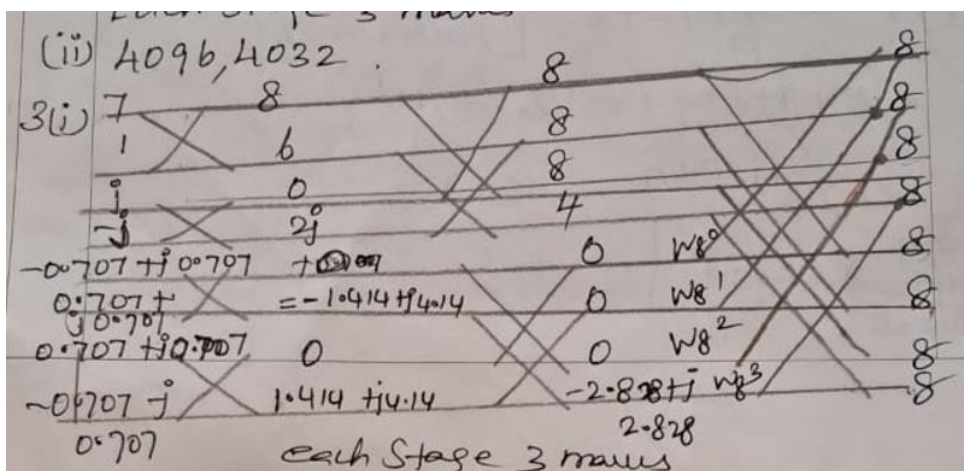 each Stage 3 marks
(ii) 4096, 4032.
3(i) 7 8 8 8
1 6 8 8
j 0 8 8
-j 2j 4 8
-0.707 + j 0.707 0 W8⁰ 8
0.707 + j 0.707 = -1.414 + j4.14 0 W8¹ 8
0.707 + j0.707 0 0 W8² 8
-0.707 - j 0.707 1.414 + j4.14 -2.828 + j 2.828 W8³ 8
each Stage 3 marks